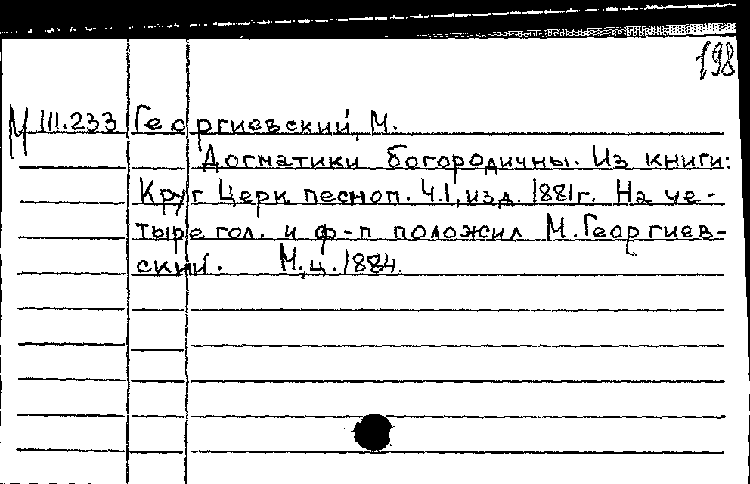 198
М III.233 Георгиевский, М.
Догматики богородичны. Из книги:
Круг Церк. песноп. Ч.I, изд. 1881г. На че-
тыре гол. и ф-п положил М. Георгиев-
ский. М, ц. 1884.